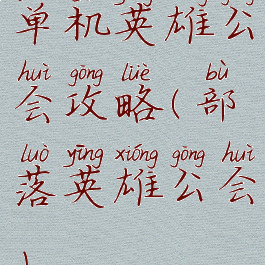 单机英雄公
huì gōng lüè bù
会攻略(部
luò yīng xióng gōng huì
落英雄公会
)